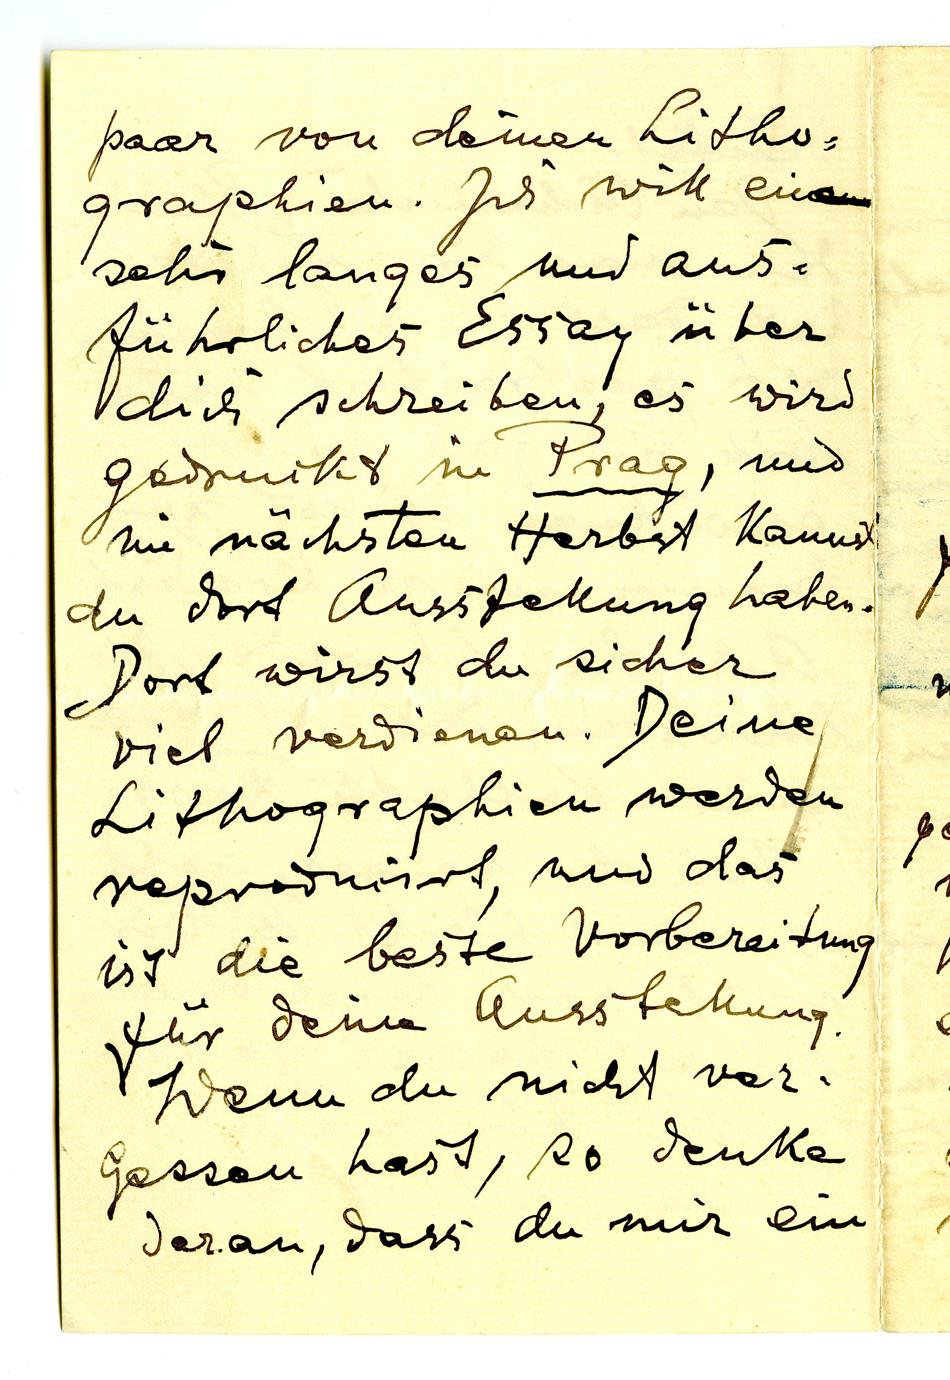 paar von deinen Litho-
graphien. Ich will ein
sehr langes und aus-
führliches Essay über
dich schreiben, es wird
gedruckt in Prag, und
im nächsten Herbst kannst
du dort Ausstellung haben.
Dort wirst du sicher
viel verdienen. Deine
Lithographien werden
reproduziert, und das
ist die beste Vorbereitung
für deine Ausstellung.
Wenn du nicht ver-
gessen hast, so denke
daran, dass du mir ein